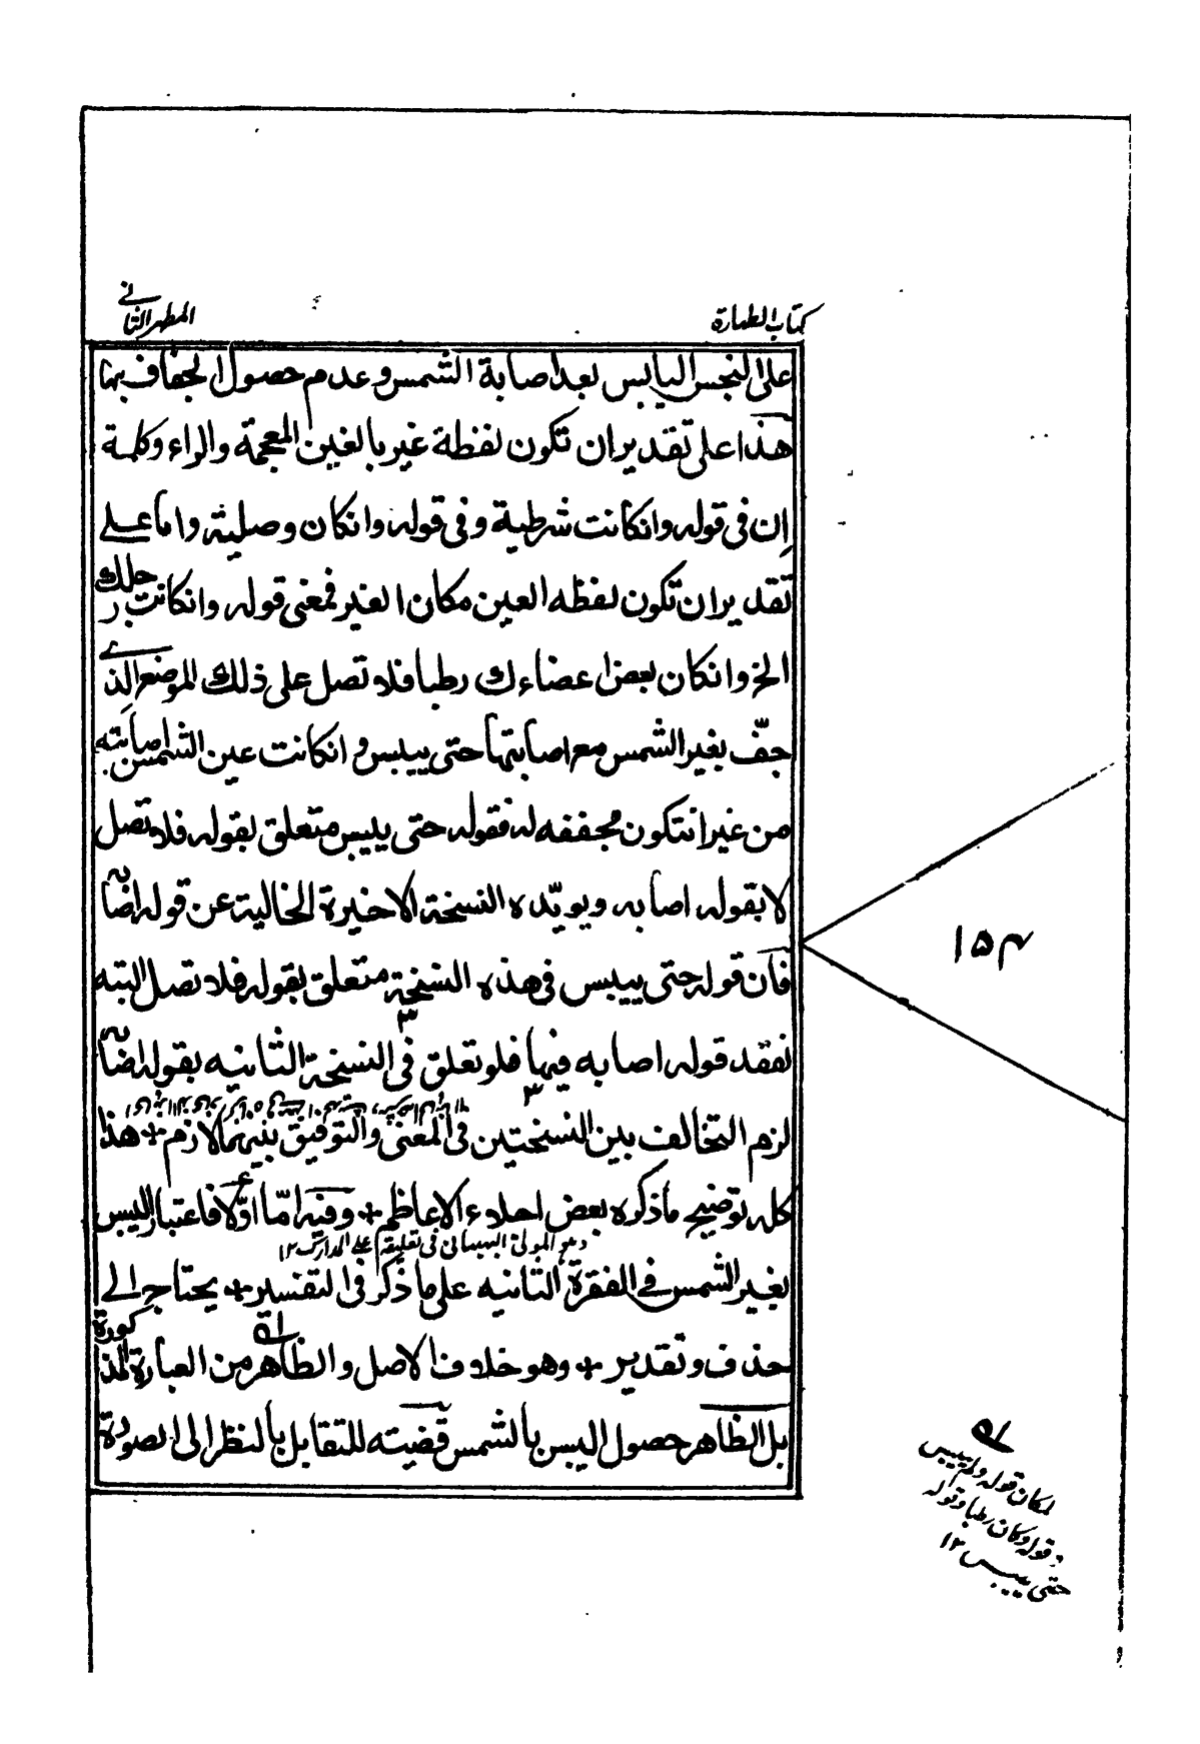 كتاب الطهارة
المطهر الثاني
على النجس اليابس بعد اصابة الشمس وعدم حصول الجفاف بها
هذا على تقدير ان تكون لفظة غير بالغين المعجمة والراء وكلمة
إن فى قوله وانكانت شرطية وفى قوله وانكان وصلية واما على
تقدير ان تكون لفظه العين مكان الغير فمعنى قوله وانكانت رجلك
الخ وانكان بعض اعضاءك رطبا فلا تصل على ذلك الموضع الذي
جفّ بغير الشمس مع اصابتها حتى ييبس وانكانت عين الشمس اصابته
من غير انتكون مجففه له فقوله حتى ييبس متعلق بقوله فلا تصل
لا بقوله اصابه ويويّده النسخة الاخيرة الخالية عن قوله اصابه
فان قوله حتى ييبس فى هذه النسخة متعلق بقوله فلا تصل البته
لفقد قوله اصابه فيها فلو تعلق فى النسخة الثانيه بقوله اصابه
لزم التخالف بين النسختين فى المعنى والتوفيق بينهما لازم + هذا
كله توضيح ماذكره بعض اجلاء الاعاظم + وفيه امّا اوّلا فاعتبار اليبس
وهو المولى البهبهانى فى تعليقه على المدارك ١٢
بغير الشمس فى الفقرة الثانيه على ما ذكر فى التفسير + يحتاج الى
حذف وتقدير + وهو خلاف الاصل والظاهر من العبارة المذكورة
بل الظاهر حصول اليبس بالشمس قضيته للتقابل بالنظر الى الصورة
١٥٣
لمكان قوله ولم ييبس
و قوله وكان رطبا وقوله
حتى ييبس ١٢